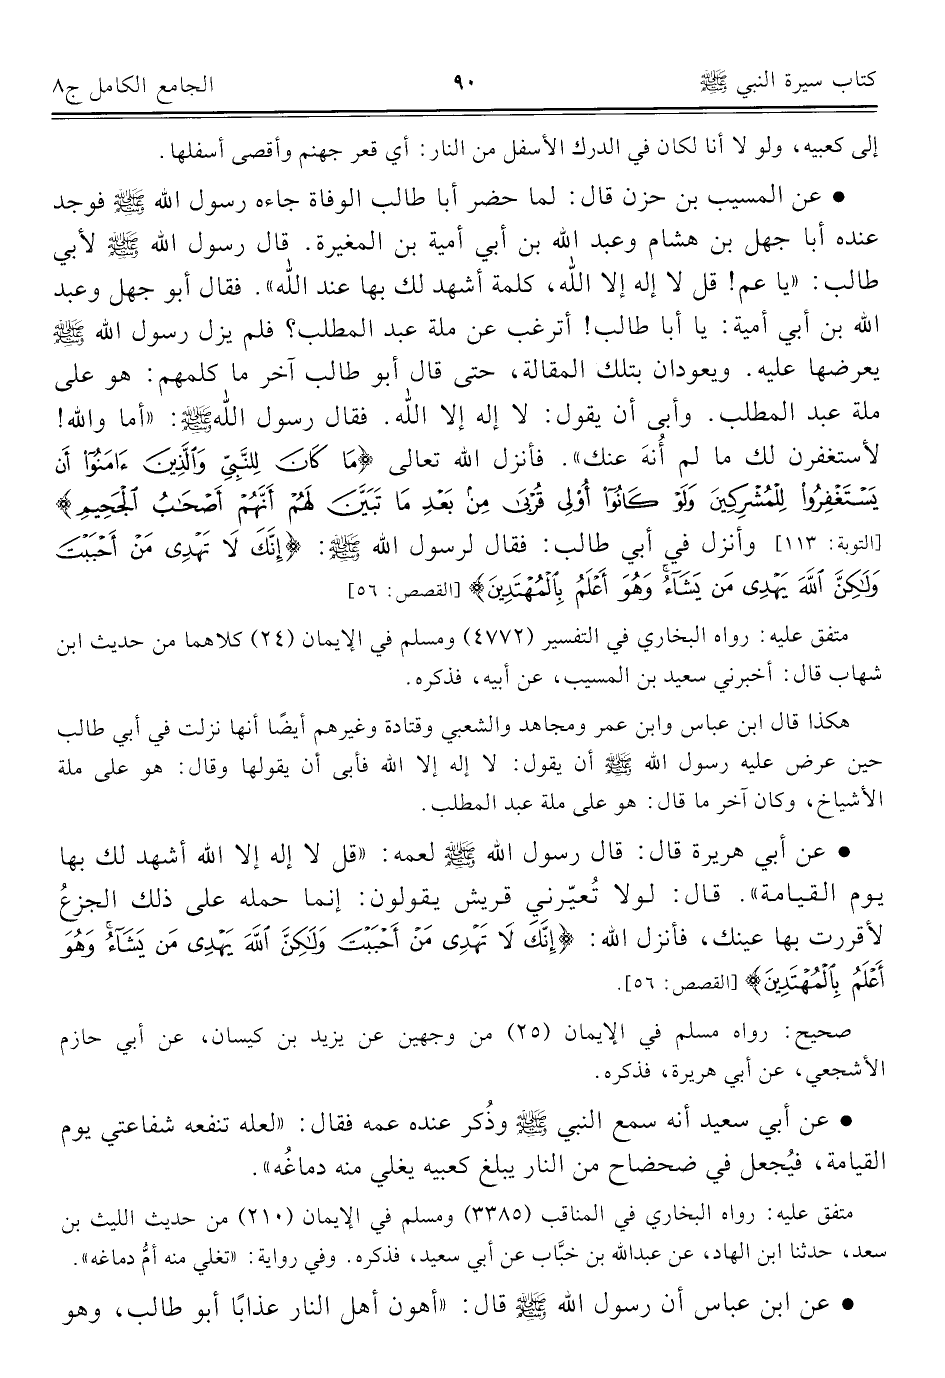 كتاب سيرة النبي ﷺ ٩٠ الجامع الكامل ج٨
إلى كعبيه، ولو لا أنا لكان في الدرك الأسفل من النار: أي قعر جهنم وأقصى أسفلها.
• عن المسيب بن حزن قال: لما حضر أبا طالب الوفاة جاءه رسول الله ﷺ فوجد
عنده أبا جهل بن هشام وعبد الله بن أبي أمية بن المغيرة. قال رسول الله ﷺ لأبي
طالب: «يا عم! قل لا إله إلا الله، كلمة أشهد لك بها عند الله». فقال أبو جهل وعبد
الله بن أبي أمية: يا أبا طالب! أترغب عن ملة عبد المطلب؟ فلم يزل رسول الله ﷺ
يعرضها عليه. ويعودان بتلك المقالة، حتى قال أبو طالب آخر ما كلمهم: هو على
ملة عبد المطلب. وأبى أن يقول: لا إله إلا الله. فقال رسول اللهﷺ: «أما والله!
لأستغفرن لك ما لم أُنهَ عنك». فأنزل الله تعالى ﴿مَا كَانَ لِلنَّبِيِّ وَٱلَّذِينَ ءَامَنُوٓا۟ أَن
يَسْتَغْفِرُوا۟ لِلْمُشْرِكِينَ وَلَوْ كَانُوٓا۟ أُو۟لِى قُرْبَىٰ مِنۢ بَعْدِ مَا تَبَيَّنَ لَهُمْ أَنَّهُمْ أَصْحَٰبُ ٱلْجَحِيمِ﴾
[التوبة: ١١٣] وأنزل في أبي طالب: فقال لرسول الله ﷺ: ﴿إِنَّكَ لَا تَهْدِى مَنْ أَحْبَبْتَ
وَلَٰكِنَّ ٱللَّهَ يَهْدِى مَن يَشَآءُ ۚ وَهُوَ أَعْلَمُ بِٱلْمُهْتَدِينَ﴾ [القصص: ٥٦]
متفق عليه: رواه البخاري في التفسير (٤٧٧٢) ومسلم في الإيمان (٢٤) كلاهما من حديث ابن
شهاب قال: أخبرني سعيد بن المسيب، عن أبيه، فذكره.
هكذا قال ابن عباس وابن عمر ومجاهد والشعبي وقتادة وغيرهم أيضًا أنها نزلت في أبي طالب
حين عرض عليه رسول الله ﷺ أن يقول: لا إله إلا الله فأبى أن يقولها وقال: هو على ملة
الأشياخ، وكان آخر ما قال: هو على ملة عبد المطلب.
• عن أبي هريرة قال: قال رسول الله ﷺ لعمه: «قل لا إله إلا الله أشهد لك بها
يوم القيامة». قال: لولا تُعيّرني قريش يقولون: إنما حمله على ذلك الجزعُ
لأقررت بها عينك، فأنزل الله: ﴿إِنَّكَ لَا تَهْدِى مَنْ أَحْبَبْتَ وَلَٰكِنَّ ٱللَّهَ يَهْدِى مَن يَشَآءُ ۚ وَهُوَ
أَعْلَمُ بِٱلْمُهْتَدِينَ﴾ [القصص: ٥٦].
صحيح: رواه مسلم في الإيمان (٢٥) من وجهين عن يزيد بن كيسان، عن أبي حازم
الأشجعي، عن أبي هريرة، فذكره.
• عن أبي سعيد أنه سمع النبي ﷺ وذُكر عنده عمه فقال: «لعله تنفعه شفاعتي يوم
القيامة، فيُجعل في ضحضاح من النار يبلغ كعبيه يغلي منه دماغُه».
متفق عليه: رواه البخاري في المناقب (٣٣٨٥) ومسلم في الإيمان (٢١٠) من حديث الليث بن
سعد، حدثنا ابن الهاد، عن عبدالله بن خبَّاب عن أبي سعيد، فذكره. وفي رواية: «تغلي منه أمُّ دماغه».
• عن ابن عباس أن رسول الله ﷺ قال: «أهون أهل النار عذابًا أبو طالب، وهو